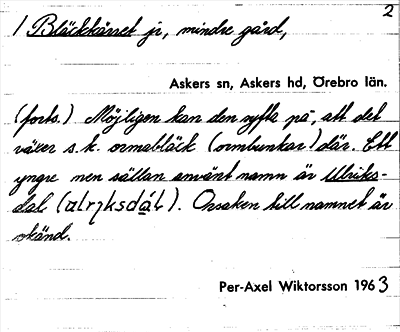 2
/ Bläckkärret ji, mindre gård,
Askers sn, Askers hd, Örebro län.
(forts.) Möjligen kan den syfta på, att det
växer s.k. ormabläck (ormbunkar) där. Ett
yngre men sällan använt namn är Ulriks-
dal (ɑlrɩksdáɫ). Orsaken till namnet är
okänd.
Per-Axel Wiktorsson 1963